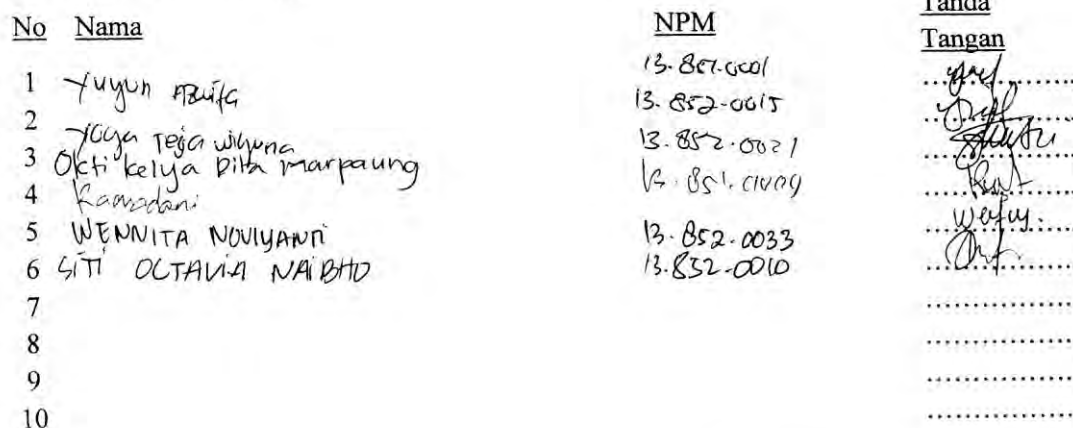 Tanda
No Nama NPM Tangan
1 Yuyun 13.851.0001
2 Yoga Teja wiguna 13.852.0015
3 Okti kelya Dita marpaung 13.852.0021
4 Ramadani
5 WENNITA NOVIYANTI 13.852.0033
6 SITI OCTAVIA NAIBHO 13.852.0010
7
8
9
10